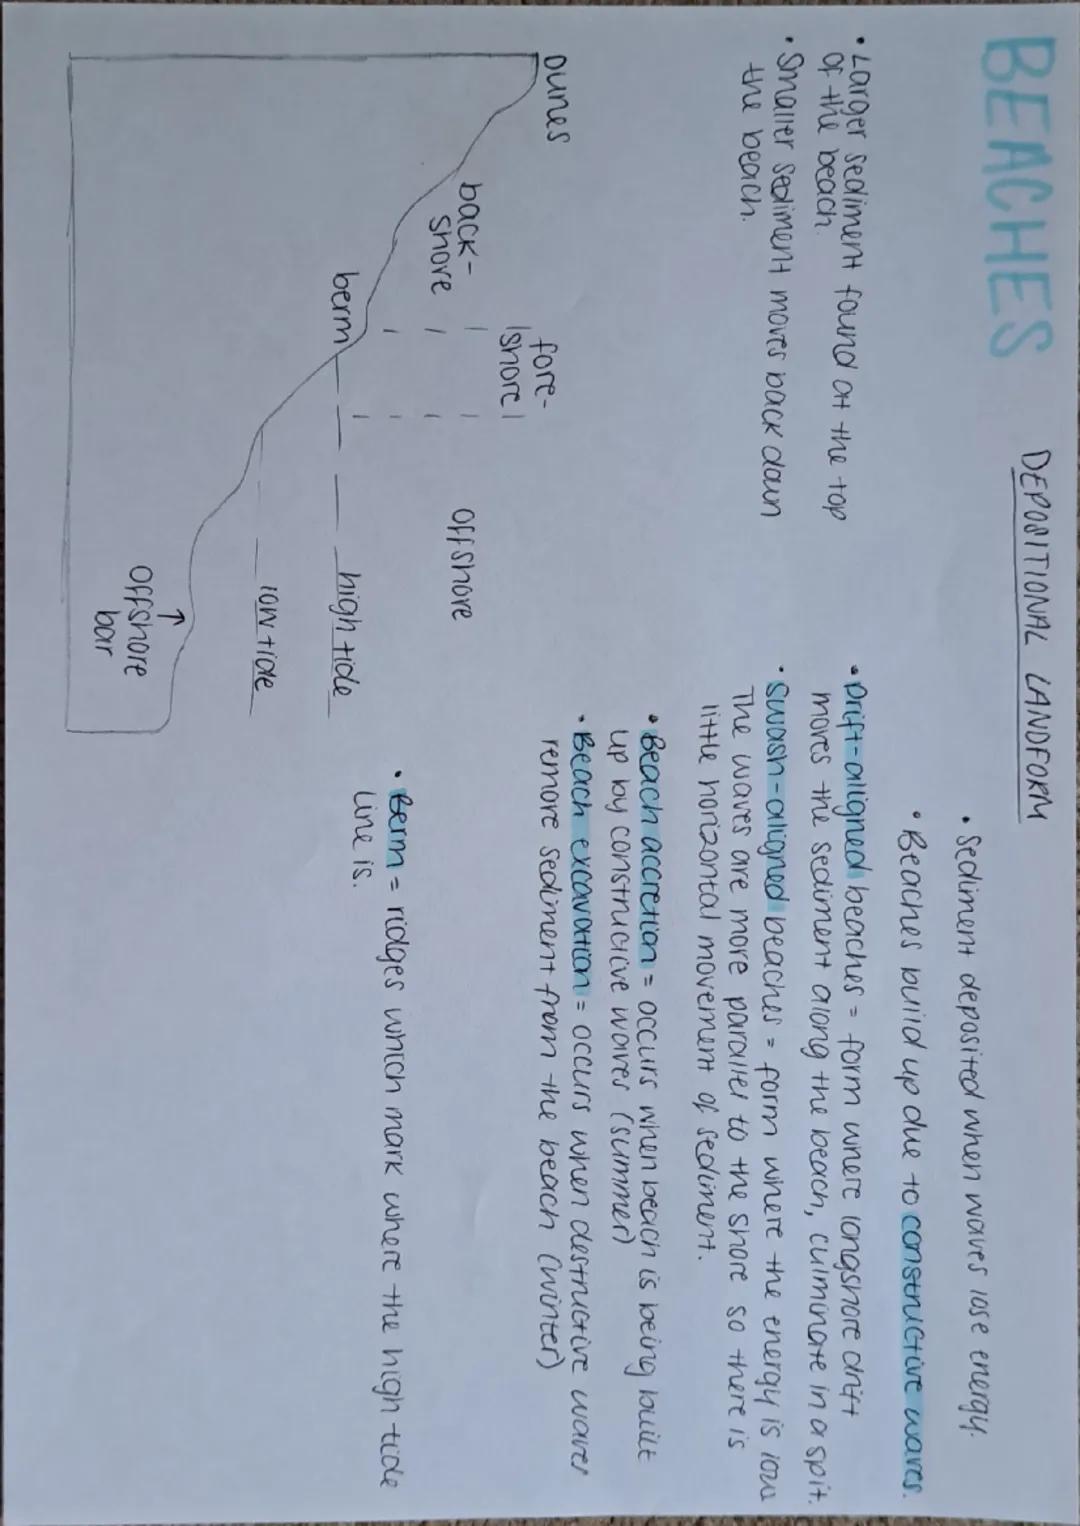 BEACHES
DEPOSITIONAL LANDFORM
• Sediment deposited when waves lose energy.
• Beaches build up due to constructive waves.
• Larger sediment found at the top
of the beach.
• Smaller sediment moves back down
the beach.
• Drift-aligned beaches = form where longshore drift
moves the sediment along the beach, culminate in a spit.
• Swash-aligned beaches = form where the energy is low
The waves are more parallel to the shore so there is
little horizontal movement of sediment.
• Beach accretion = occurs when beach is being built
up by constructive waves (summer)
• Beach excavation = occurs when destructive waves
remove sediment from the beach (winter)
• Berm = ridges which mark where the high tide
line is.
Dunes
back-
shore
fore-
shore
offshore
berm
high tide
low tide
offshore
bar